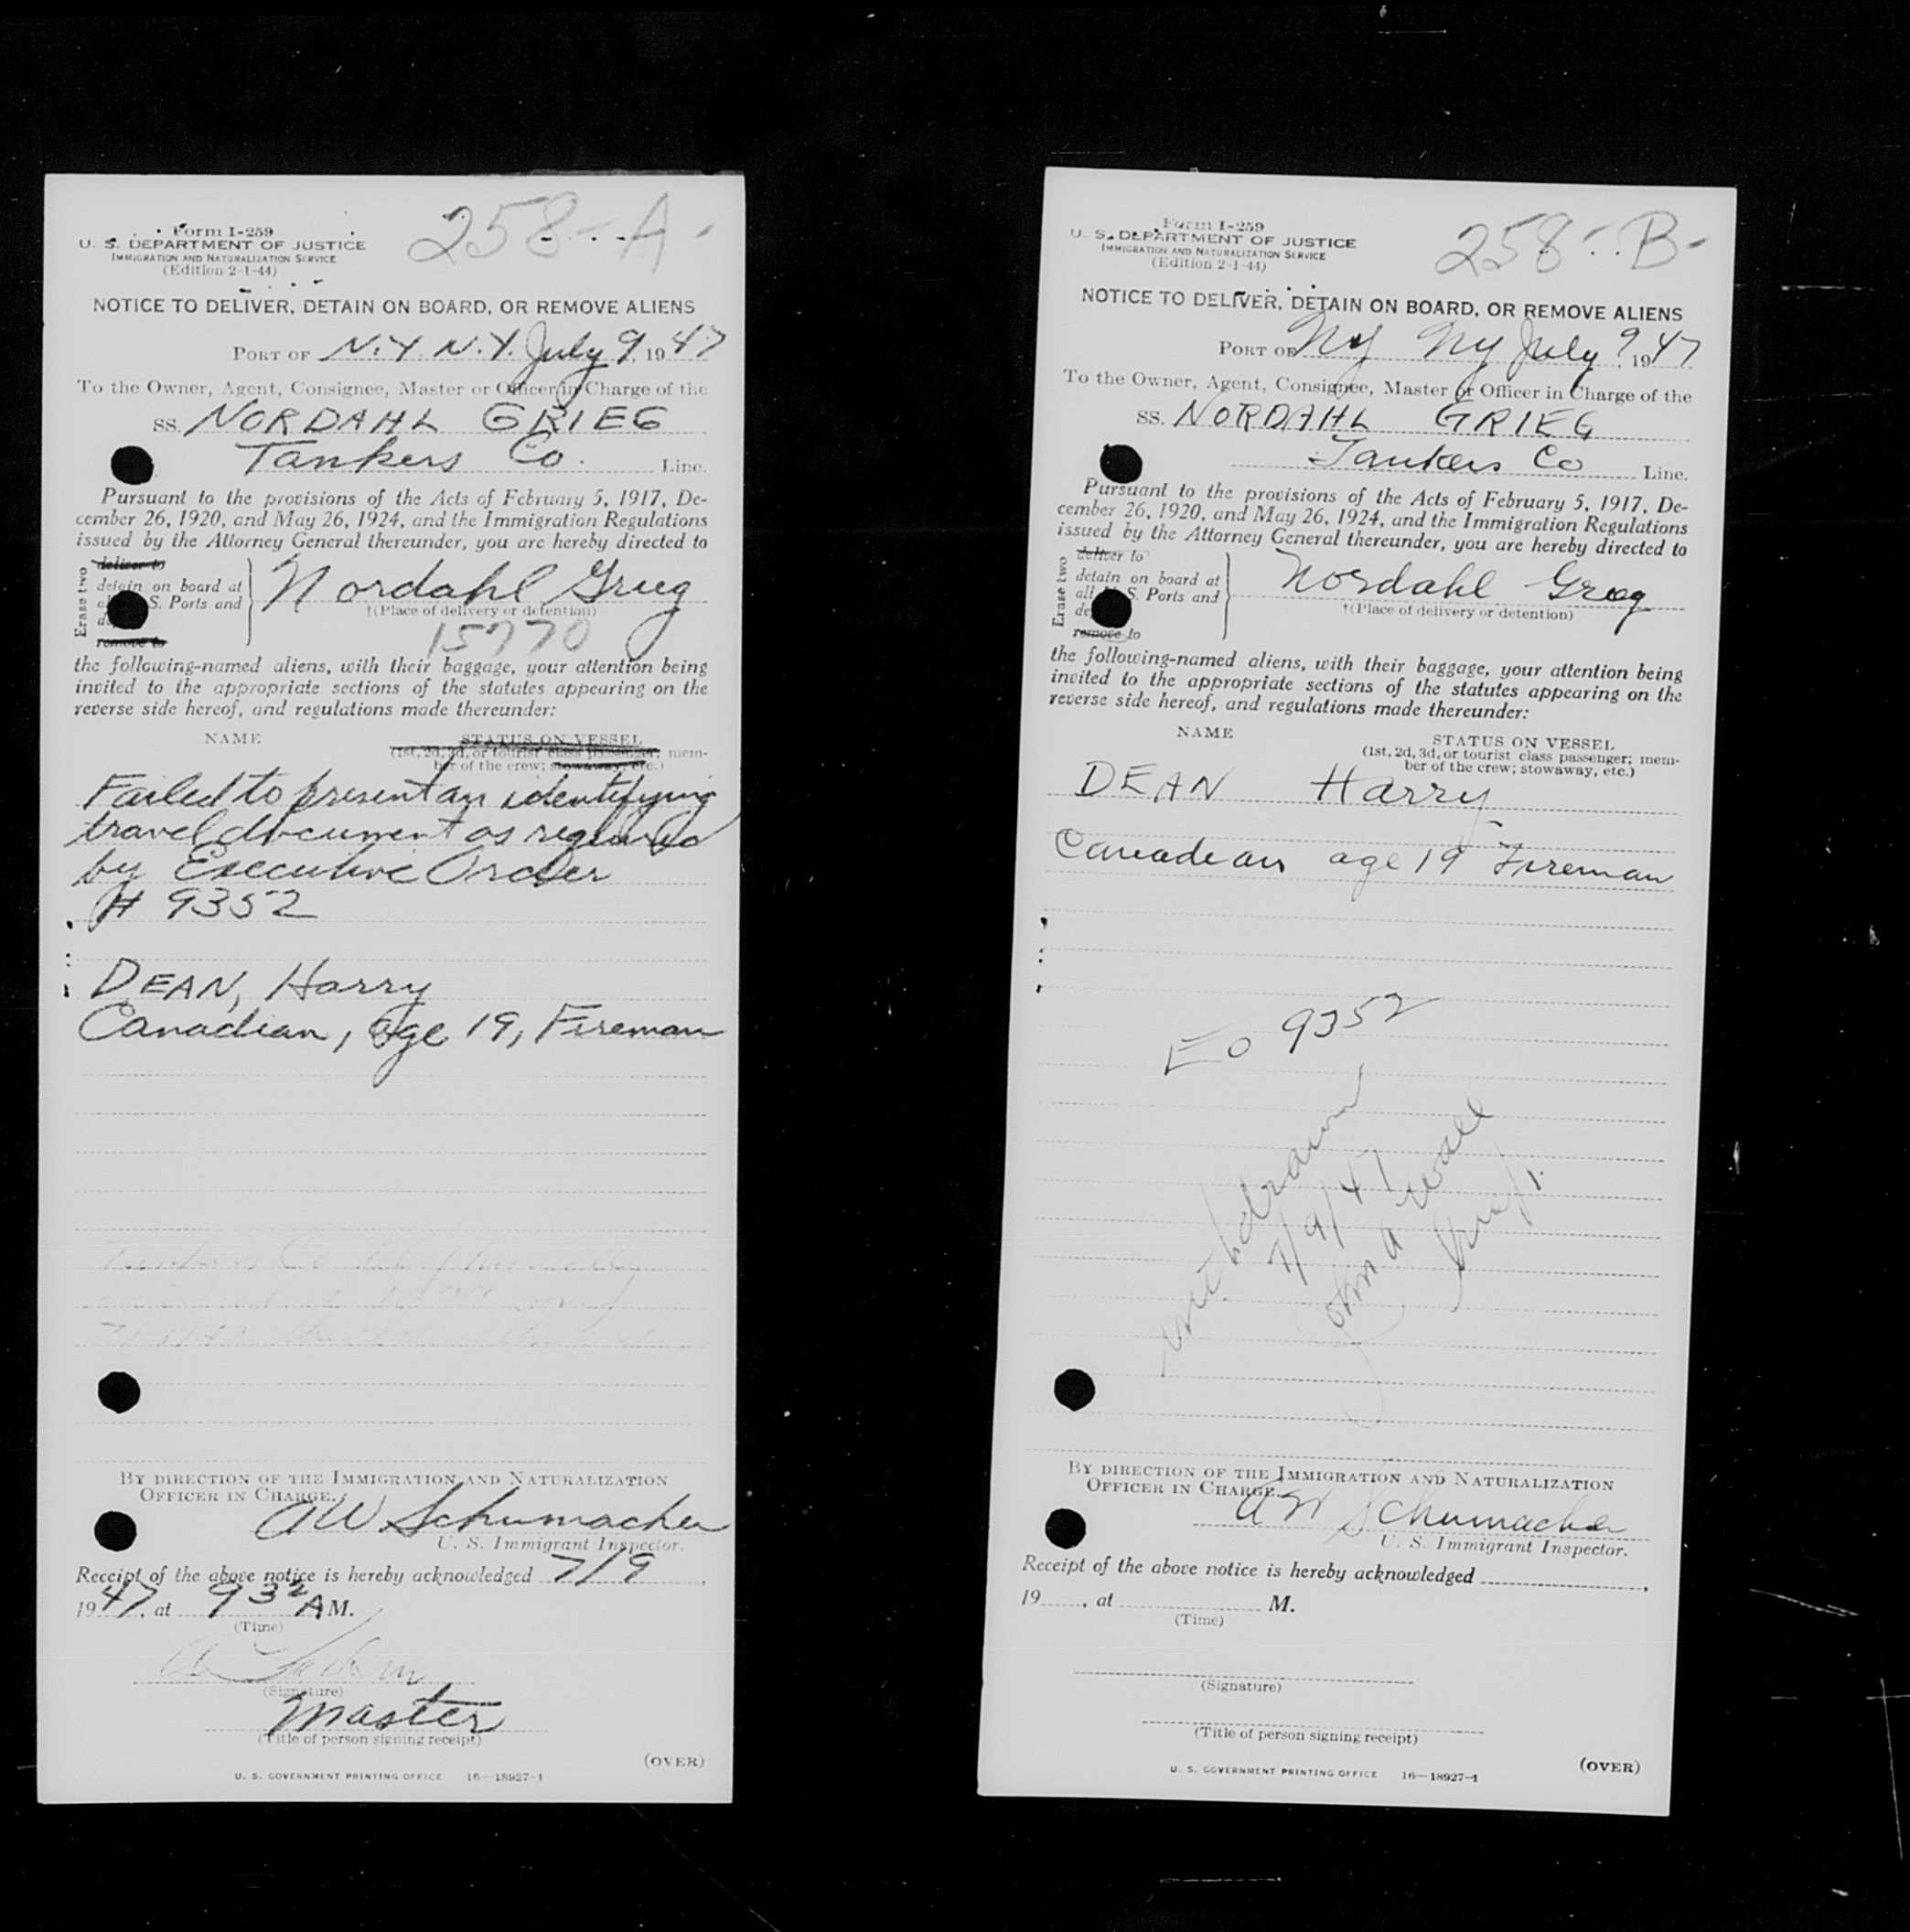 Form I-259
258-A-
U. S. DEPARTMENT OF JUSTICE
IMMIGRATION AND NATURALIZATION SERVICE
(Edition 2-1-44)
NOTICE TO DELIVER, DETAIN ON BOARD, OR REMOVE ALIENS
PORT OF N.Y. N.Y. July 9, 1947
To the Owner, Agent, Consignee, Master or Officer in Charge of the
SS. NORDAHL GRIEG
Tankers Co. Line.
Pursuant to the provisions of the Acts of February 5, 1917, De-
cember 26, 1920, and May 26, 1924, and the Immigration Regulations
issued by the Attorney General thereunder, you are hereby directed to
Erase two
deliver to
detain on board at
S. Ports and
remove to
Nordahl Grieg
†(Place of delivery or detention)
15770
the following-named aliens, with their baggage, your attention being
invited to the appropriate sections of the statutes appearing on the
reverse side hereof, and regulations made thereunder:
NAME STATUS ON VESSEL
(1st, 2d, 3d, or tourist class passenger; mem-
ber of the crew; stowaway, etc.)
Failed to present an identifying
travel document as required
by Executive Order
# 9352
DEAN, Harry
Canadian, age 19, Fireman
BY DIRECTION OF THE IMMIGRATION AND NATURALIZATION
OFFICER IN CHARGE.
AW Schumacher
U. S. Immigrant Inspector.
Receipt of the above notice is hereby acknowledged 7/9,
1947, at 932 AM.
(Time)
(Signature)
Master
(Title of person signing receipt)
(OVER)
U. S. GOVERNMENT PRINTING OFFICE 16—18927-1
Form I-259
258-B-
U. S. DEPARTMENT OF JUSTICE
IMMIGRATION AND NATURALIZATION SERVICE
(Edition 2-1-44)
NOTICE TO DELIVER, DETAIN ON BOARD, OR REMOVE ALIENS
PORT OF NY NY July 9, 1947
To the Owner, Agent, Consignee, Master or Officer in Charge of the
SS. NORDAHL GRIEG
Tankers Co Line.
Pursuant to the provisions of the Acts of February 5, 1917, De-
cember 26, 1920, and May 26, 1924, and the Immigration Regulations
issued by the Attorney General thereunder, you are hereby directed to
Erase two
deliver to
detain on board at
all S. Ports and
remove to
Nordahl Grieg
†(Place of delivery or detention)
the following-named aliens, with their baggage, your attention being
invited to the appropriate sections of the statutes appearing on the
reverse side hereof, and regulations made thereunder:
NAME STATUS ON VESSEL
(1st, 2d, 3d, or tourist class passenger; mem-
ber of the crew; stowaway, etc.)
DEAN Harry
Canadean age 19 Fireman
EO 9352
withdrawn
7/9/47
John A Wall
Insp.
BY DIRECTION OF THE IMMIGRATION AND NATURALIZATION
OFFICER IN CHARGE.
AW Schumacher
U. S. Immigrant Inspector.
Receipt of the above notice is hereby acknowledged
19 , at M.
(Time)
(Signature)
(Title of person signing receipt)
(OVER)
U. S. GOVERNMENT PRINTING OFFICE 16—18927-1